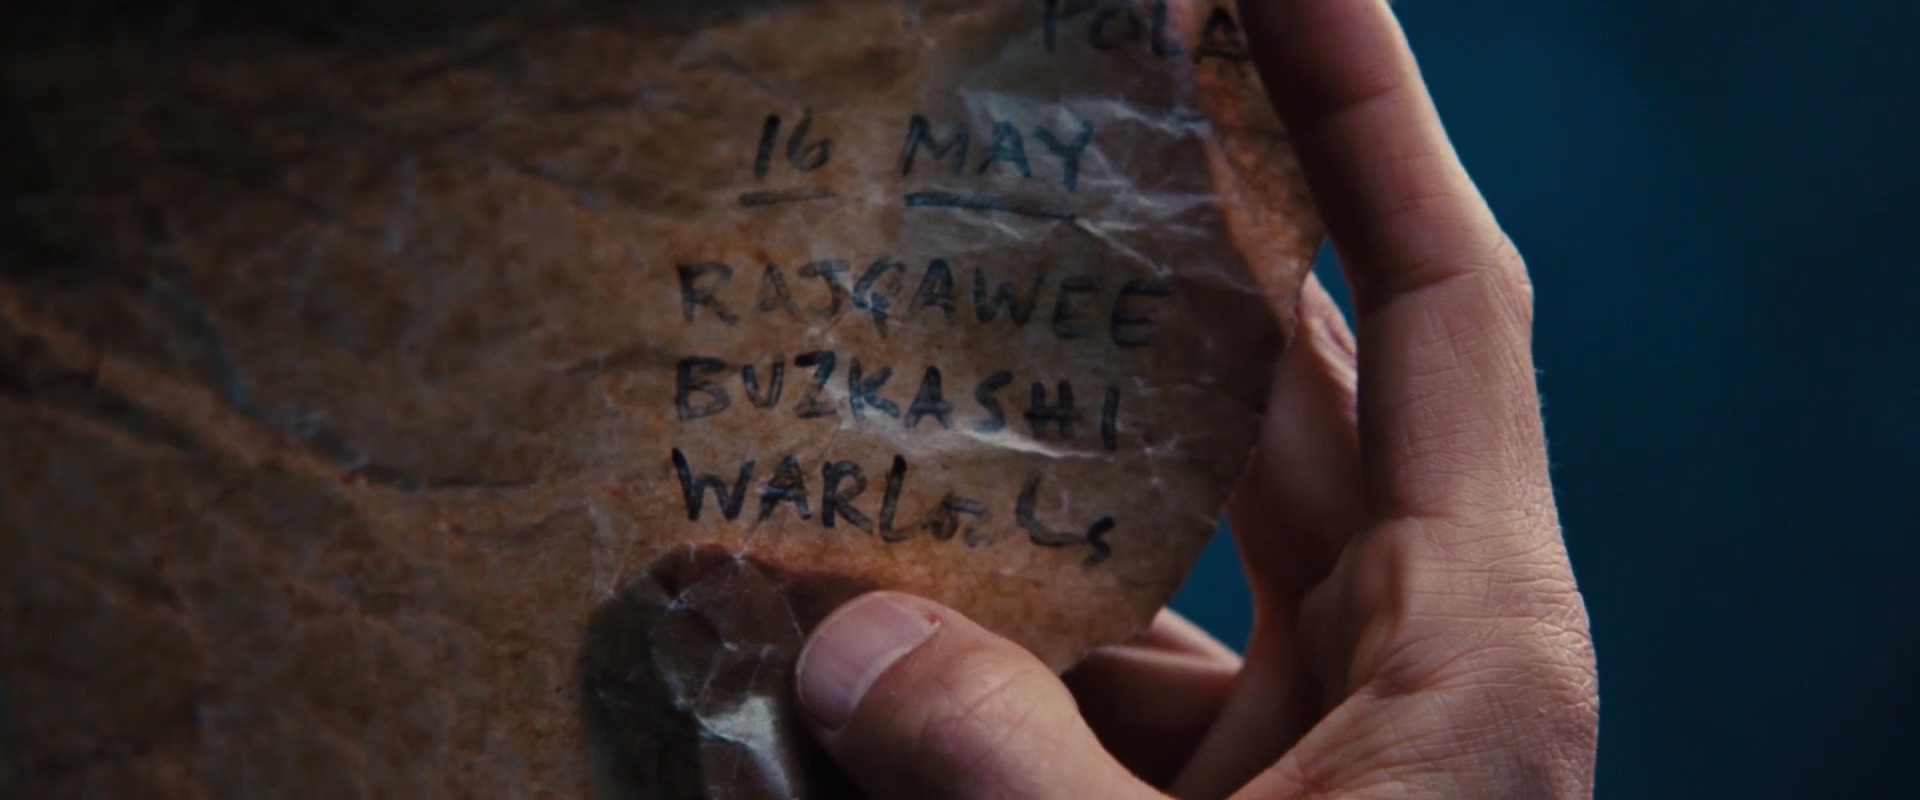 POLA
16 MAY
RAJGAWEE
BUZKASHI
WARLocks